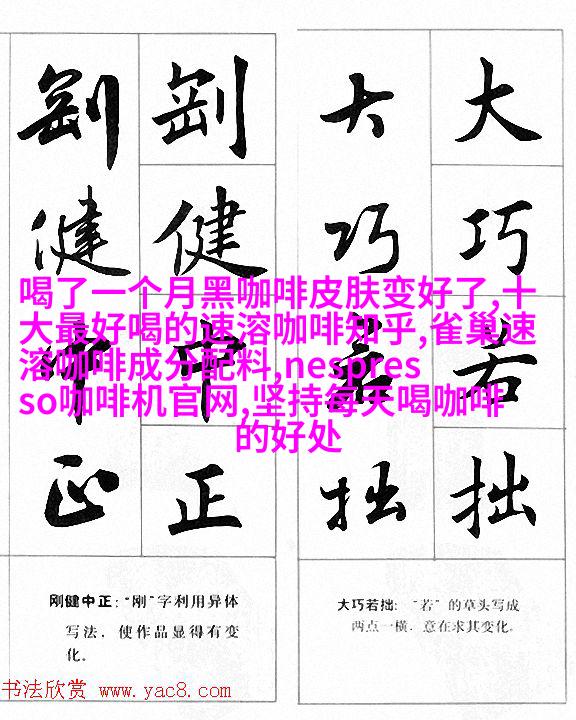 剛健中正
剛健中正
大巧若拙
大巧若拙
喝了一个月黑咖啡皮肤变好了,十
大最好喝的速溶咖啡知乎,雀巢速
溶咖啡成分配料,nespres
so咖啡机官网,坚持每天喝咖啡
的好处
刚健中正:“刚”字利用异体
写法，使作品显得有变
化。
大巧若拙:“若”的草头写成
两点一横，意在求其变化。
书法欣赏 www.yac8.com